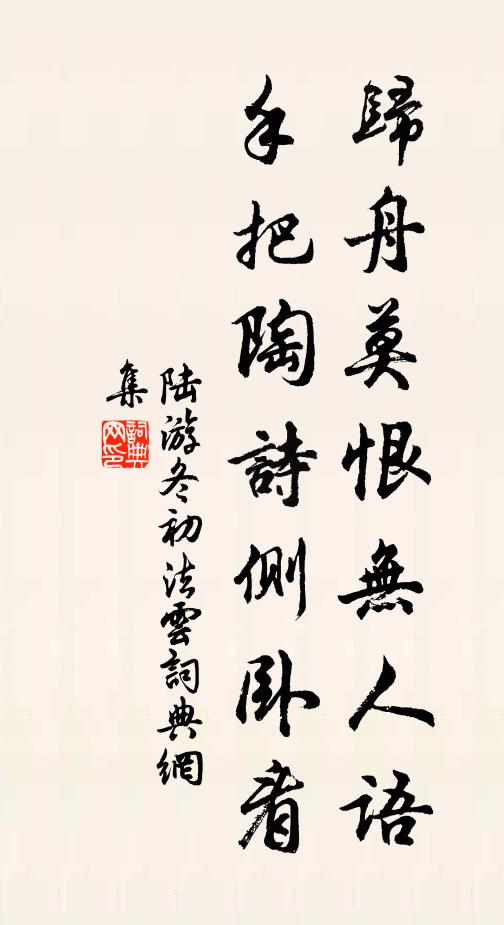 歸舟莫恨無人語
手把陶詩側卧看
陸游冬初法雲詞典網
集
詞典網印